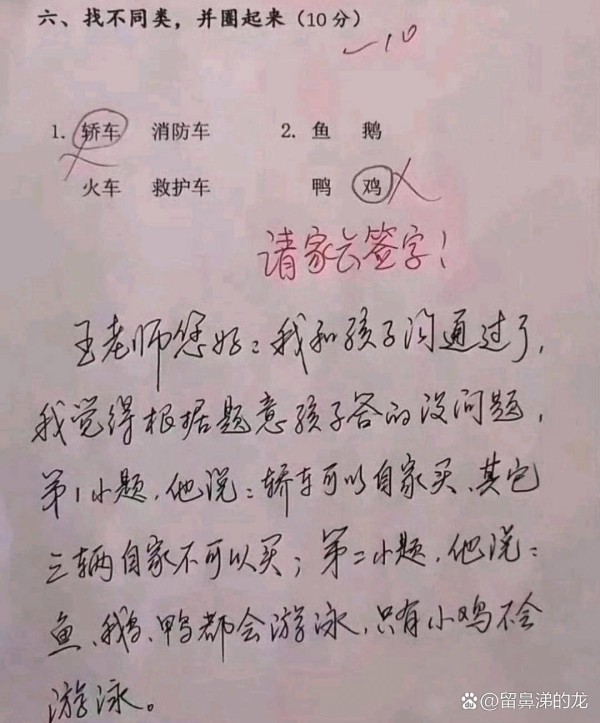 六、找不同类，并圈起来（10分）
-10
1. 轿车 消防车 2. 鱼 鹅
火车 救护车 鸭 鸡
请家长签字！
王老师您好：我和孩子沟通过了，
我觉得根据题意孩子答的没问题，
第1小题，他说：轿车可以自家买、其它
三辆自家不可以买；第二小题，他说：
鱼、鹅、鸭都会游泳，只有小鸡不会
游泳。
@留鼻涕的龙